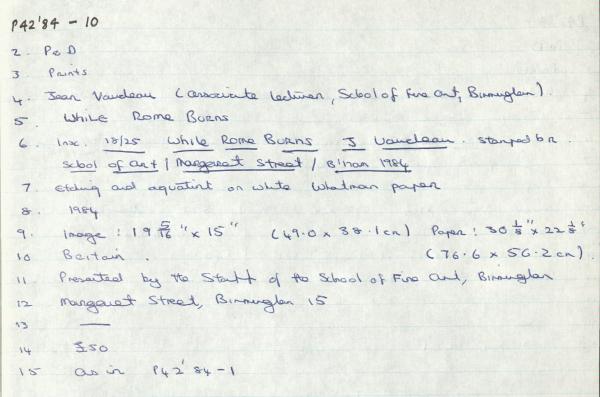 P42'84 - 10
2. P & D
3 Prints
4. Jean Vaudeau (Associate Lecturer, School of Fine Art, Birmingham).
5 While Rome Burns
6. Insc. 18/25 While Rome Burns J Vaudeau. stamped b r.
School of Art / Margaret Street / B'ham 1984
7. Etching and aquatint on white Whatman paper
8. 1984
9. Image : 19 5/16" x 15" (49.0 x 38.1 cm) Paper : 30 1/8" x 22 1/8"
10 Britain. (76.6 x 56.2 cm).
11 Presented by the Staff of the School of Fine Art, Birmingham
12 Margaret Street, Birmingham 15
13 —
14 £50
15 as in P42'84-1